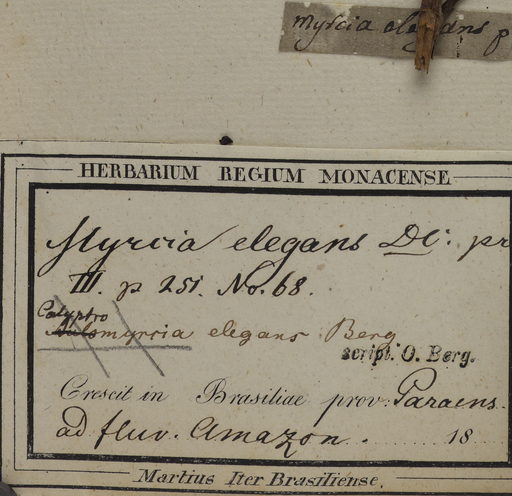 Myrcia elegans p
HERBARIUM REGIUM MONACENSE
Myrcia elegans DC. pr
III. p 251. No. 68.
Calyptro
Aulomyrcia elegans Berg
script. O. Berg.
Crescit in Brasiliae prov: Paraens.
ad fluv. Amazon. 18
Martius Iter Brasiliense.